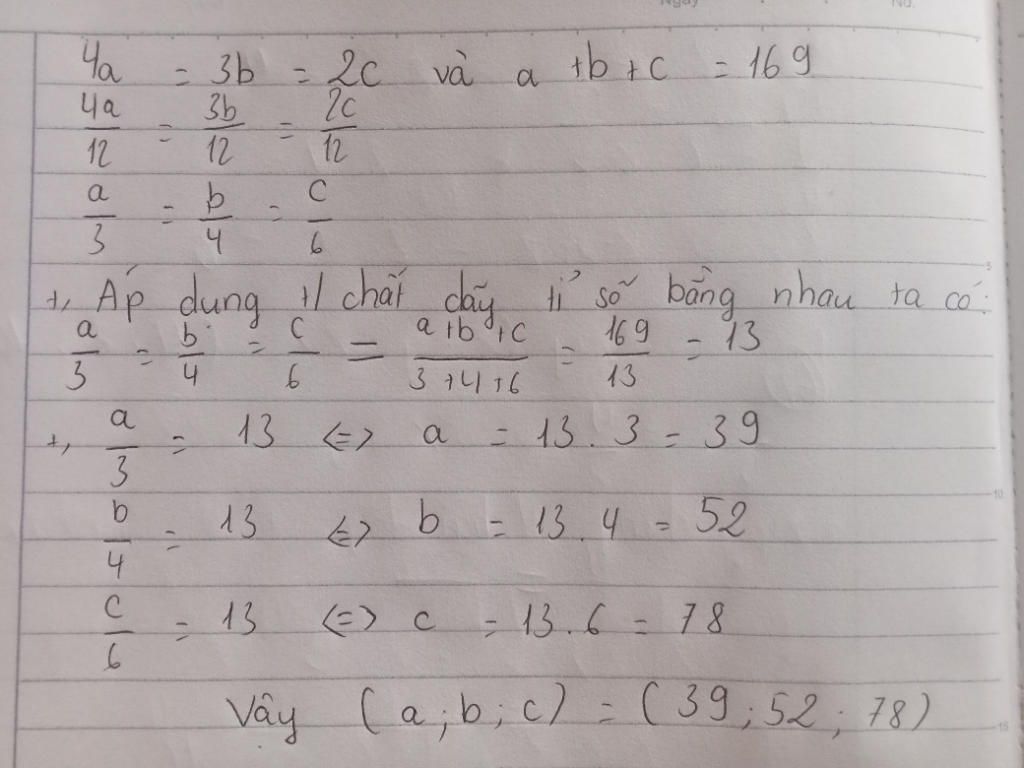 Ngày No.
4a = 3b = 2c và a +b +c = 169
4a/12 = 3b/12 = 2c/12
a/3 = b/4 = c/6
+, Áp dung t/chất dãy tỉ số bằng nhau ta có:
a/3 = b/4 = c/6 = a+b+c/3+4+6 = 169/13 = 13
+, a/3 = 13 <=> a = 13.3 = 39
b/4 = 13 <=> b = 13.4 = 52
c/6 = 13 <=> c = 13.6 = 78
Vây (a;b;c) = (39;52;78)
5
10
15